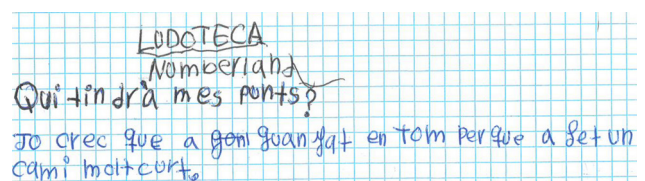 LUDOTECA
Nomberland
Qui tindrà mes punts?
Jo crec que a guanyat en tom per que a fet un
cami molt curt.